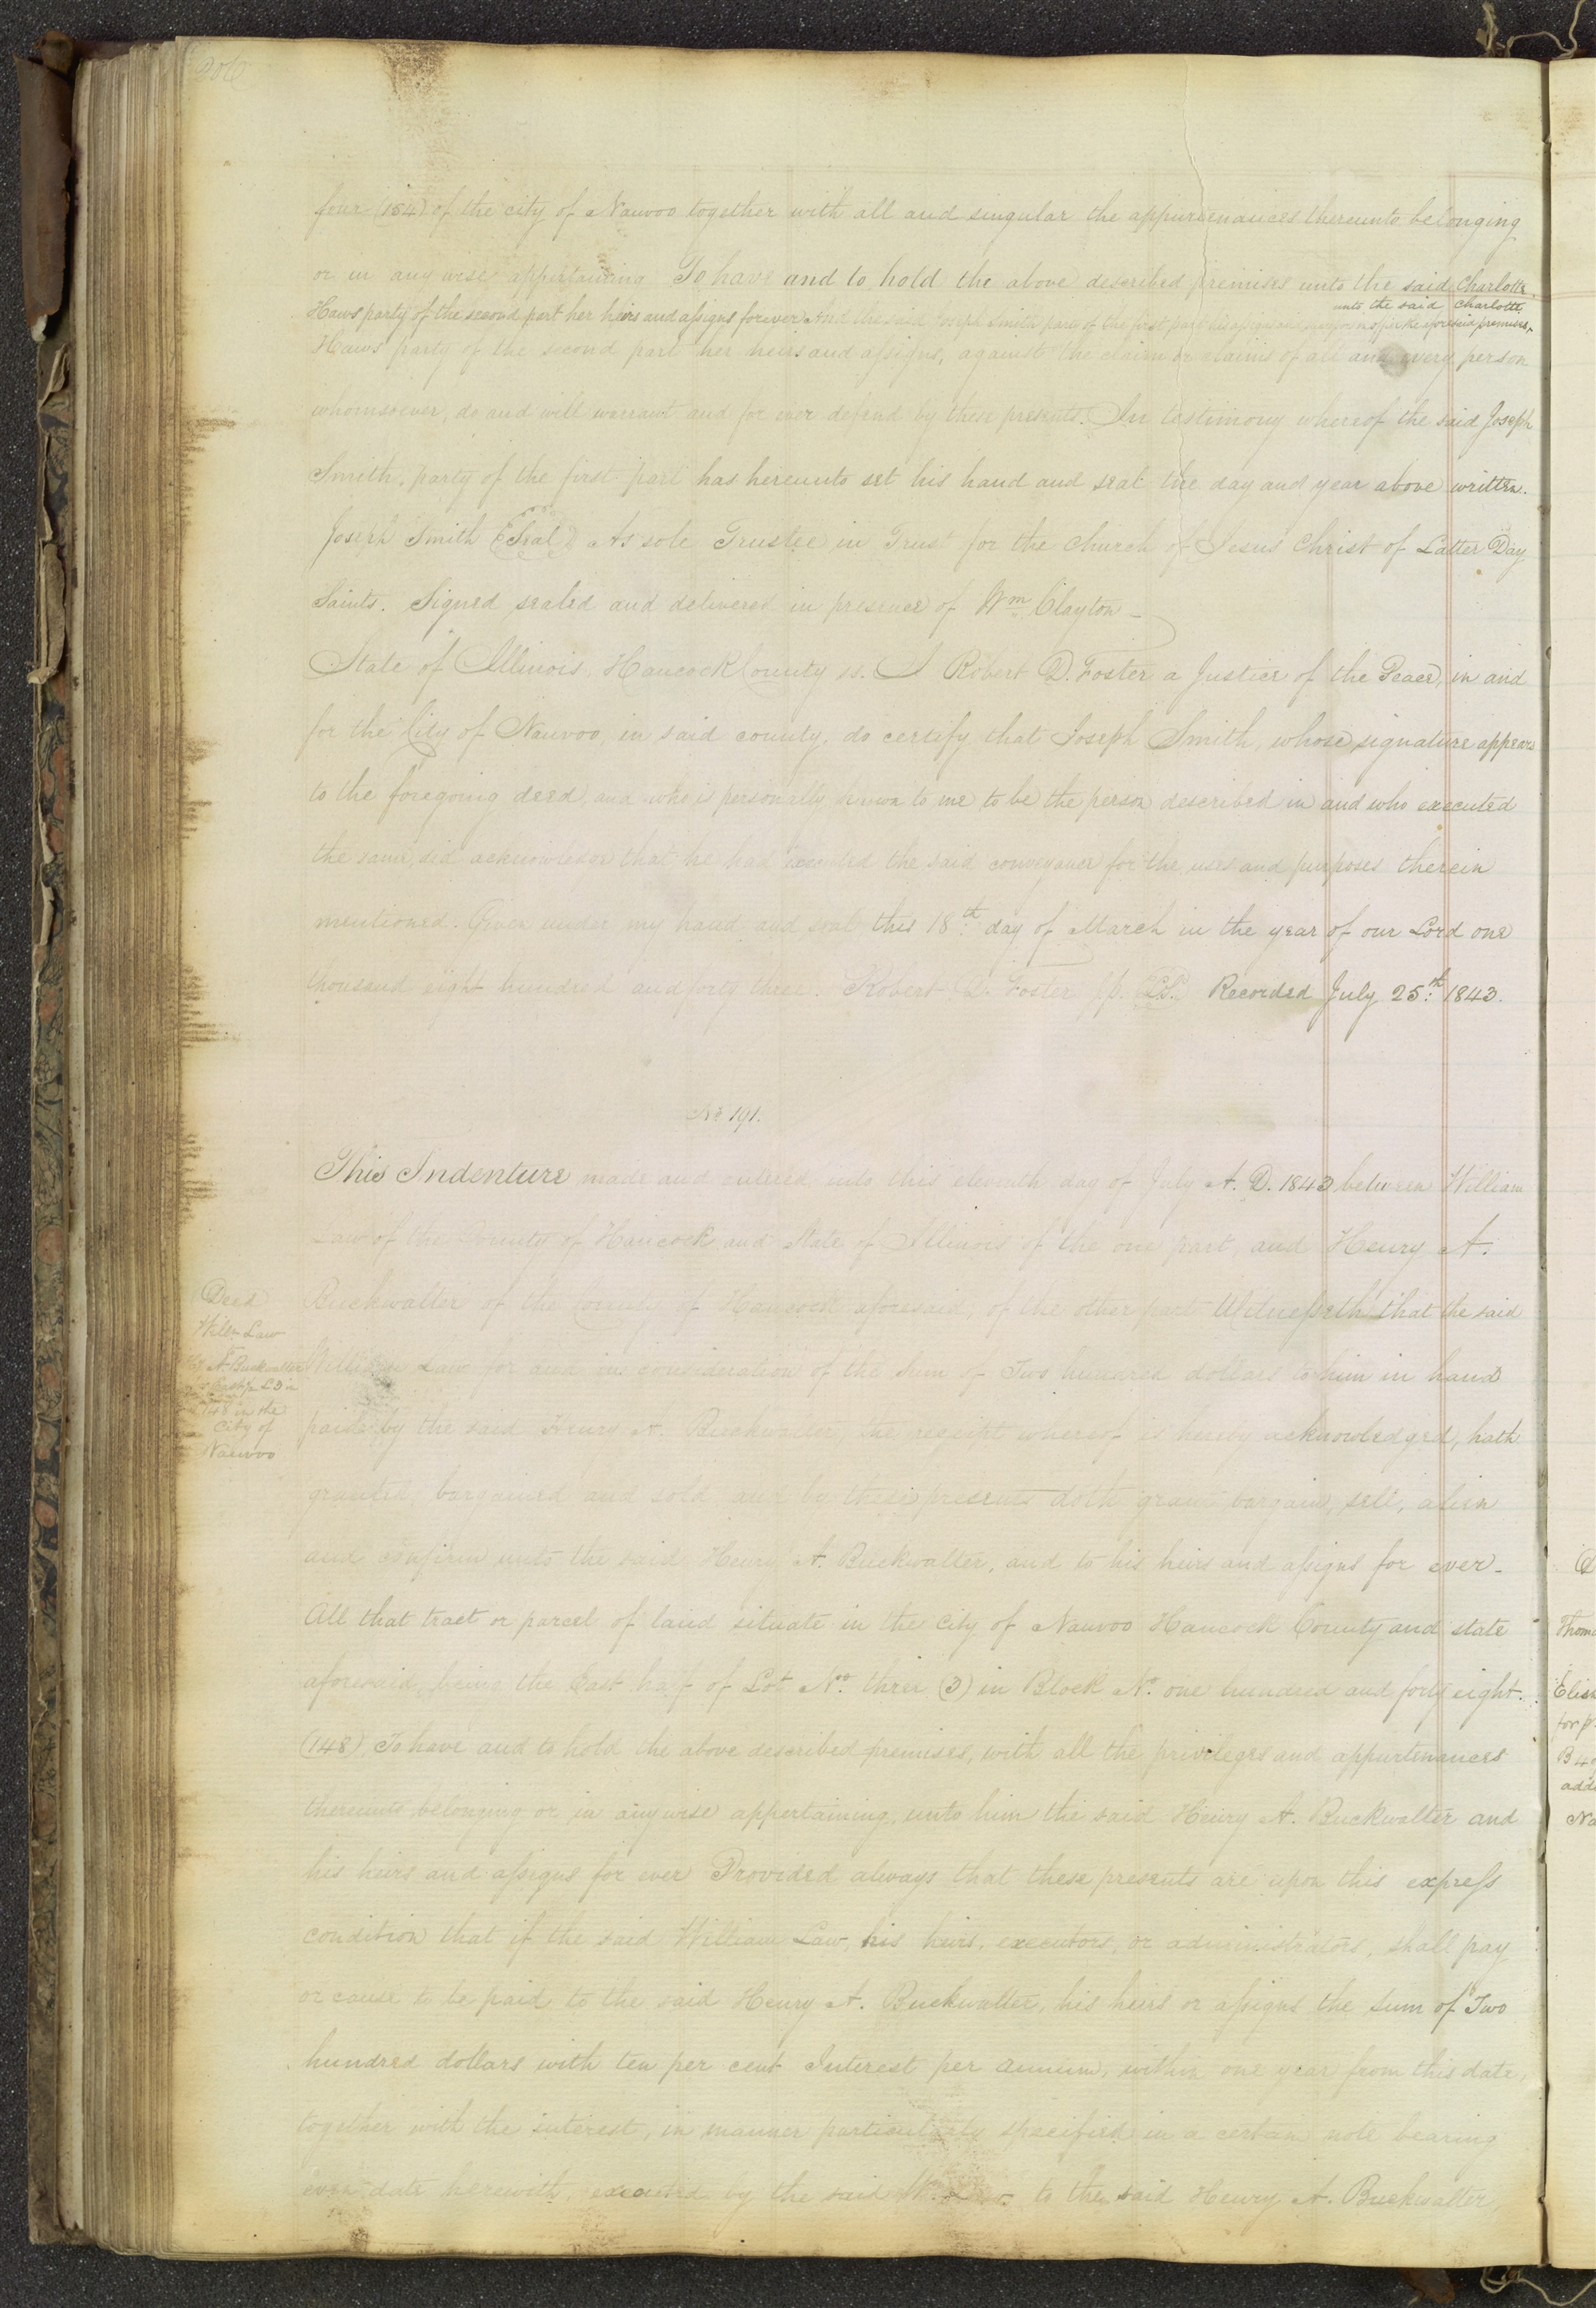 206
four (154) of the city of Nauvoo together with all and singular the appurtenances thereunto belonging
or in any wise appertaining To have and to hold the above described premises unto the said Charlotte
Haws party of the second part her heirs and assigns forever And the said Joseph Smith party of the first part the aforesaid premises,
unto the said Charlotte
Haws party of the second part her heirs and assigns, against the claim or claims of all and every person
whomsoever, do and will warrant and for ever defend by these presents. In testimony whereof the said Joseph
Smith, party of the first part has hereunto set his hand and seal the day and year above written.
Joseph Smith (Seal) As sole Trustee in Trust for the Church of Jesus Christ of Latter Day
Saints. Signed sealed and delivered in presence of Wm Clayton –
State of Illinois, Hancock County ss. I Robert D. Foster a Justice of the Peace, in and
for the City of Nauvoo, in said county, do certify that Joseph Smith, whose signature appears
to the foregoing deed, and who is personally known to me to be the person described in and who executed
the same, did acknowledge that he had executed the said conveyance for the uses and purposes therein
mentioned. Given under my hand and seal this 18th day of March in the year of our Lord one
thousand eight hundred and forty three. Robert D. Foster J.P. L.S. Recorded July 25th 1843.
No 191.
This Indenture made and entered into this eleventh day of July A. D. 1843 between William
Law of the County of Hancock and State of Illinois of the one part, and Henry A.
Buckwalter of the County of Hancock aforesaid, of the other part Witnesseth that the said
William Law for and in consideration of the sum of Two hundred dollars to him in hand
paid by the said Henry A. Buckwalter, the receipt whereof is hereby acknowledged, hath
granted, bargained and sold and by these presents doth grant bargain, sell, alien
and confirm unto the said Henry A. Buckwalter, and to his heirs and assigns for ever –
All that tract or parcel of land situate in the City of Nauvoo Hancock County and state
aforesaid, being the East half of Lot No. three (3) in Block No. one hundred and forty eight.
(148) To have and to hold the above described premises, with all the privileges and appurtenances
thereunto belonging or in anywise appertaining unto him the said Henry A. Buckwalter and
his heirs and assigns for ever Provided always that these presents are upon this express
condition that if the said William Law, his heirs, executors, or administrators, shall pay
or cause to be paid to the said Henry A. Buckwalter, his heirs or assigns the sum of Two
hundred dollars with ten per cent Interest per annum, within one year from this date,
together with the interest, in manner particularly specified in a certain note bearing
even date herewith, executed by the said W. Law to the said Henry A. Buckwalter,
Deed
Willm Law
A Buckwalter
L3 in
148 in the
City of
Nauvoo